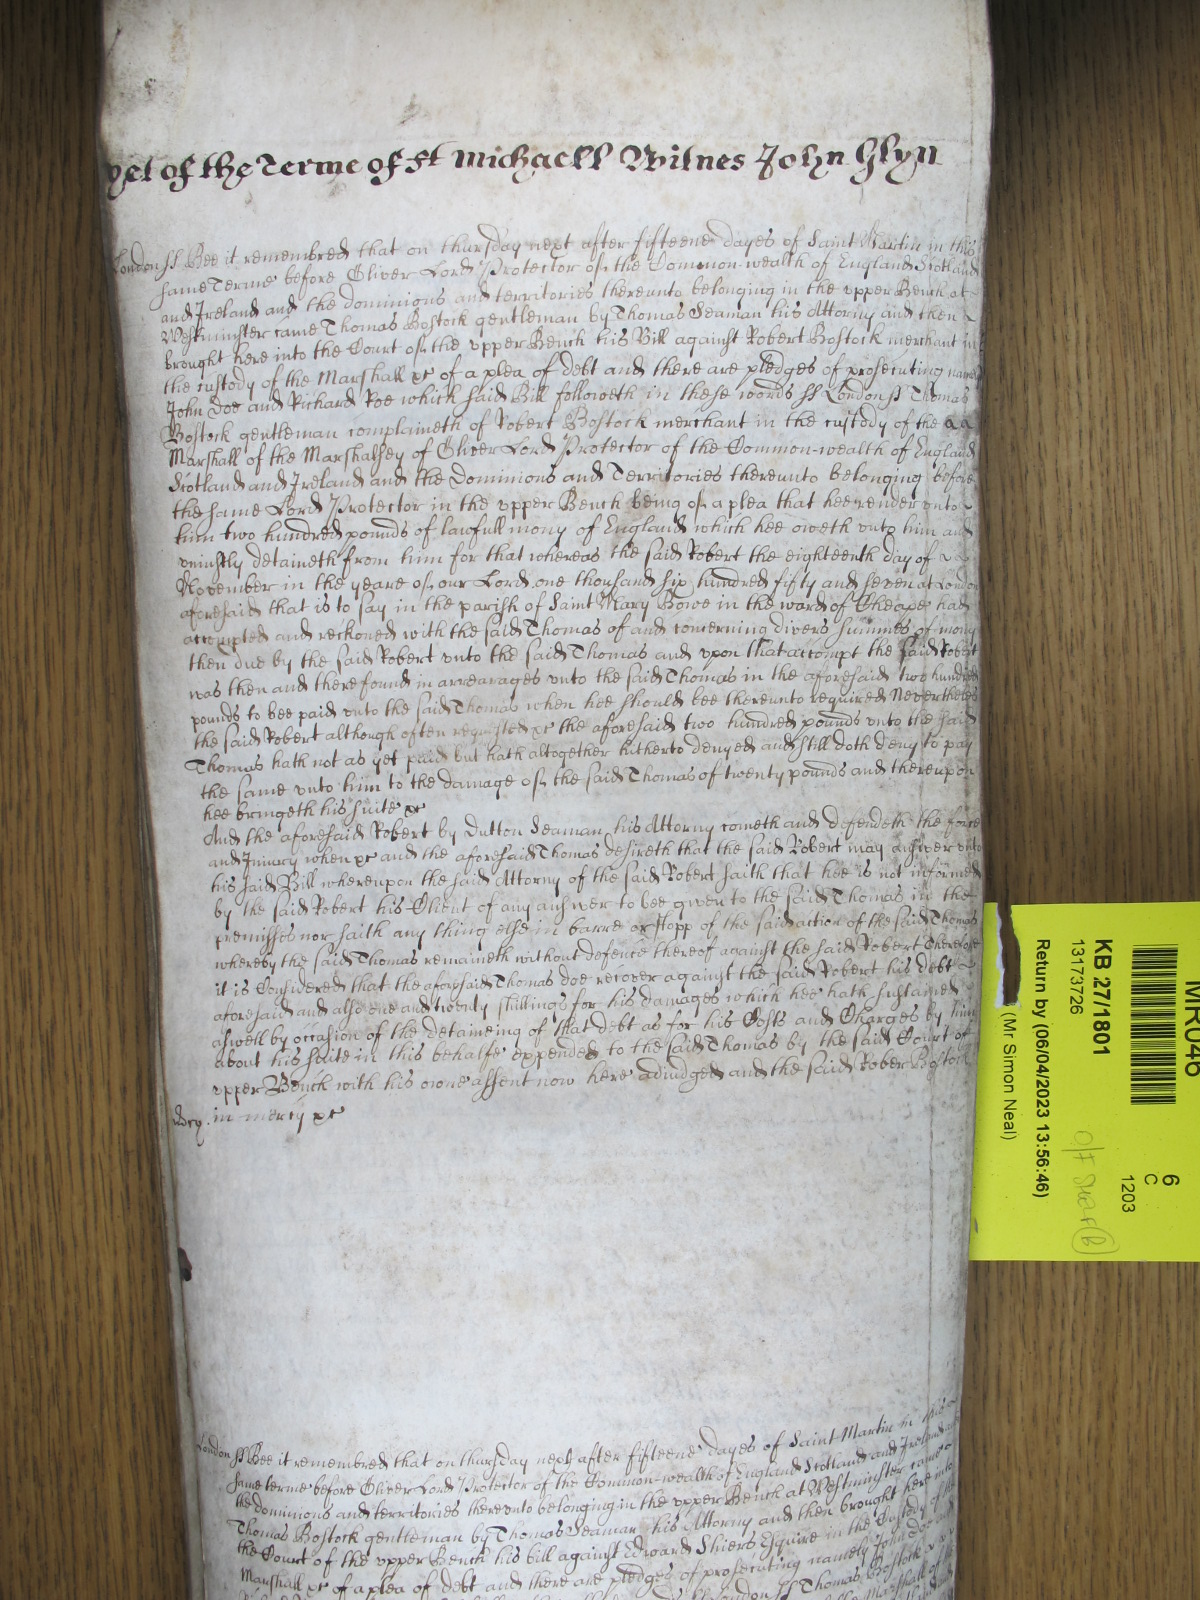 yet of the Terme of St Michaell Witnes John Glyn
London ss Bee it remembred that on thursday next after fifteene dayes of Saint Martin in this
same Terme before Oliver Lord Protector of the Common-wealth of England Scotland
and Ireland and the dominions and territories thereunto belonging in the vpper Bench at
Westminster came Thomas Bostock gentleman by Thomas Seaman his Attorny and then
brought here into the Court of the vpper Bench his Bill against Robert Bostock merchant in
the custody of the Marshall xc of a plea of debt and there are pledges of prosecuting
John Doe and Richard Roe which said Bill followeth in these words ss London ss Thomas
Bostock gentleman complaineth of Robert Bostock merchant in the custody of the
Marshall of the Marshalsey of Oliver Lord Protector of the Common-wealth of England
Scotland and Ireland and the Dominions and Territories thereunto belonging before
the same Lord Protector in the vpper Bench being of a plea that hee render vnto
him two hundred pounds of lawfull mony of England which hee oweth vnto him and
vniustly detaineth from him for that whereas the said Robert the eighteenth day of
November in the yeare of our Lord one thousand six hundred fifty and seven at London
aforesaid that is to say in the parish of Saint Mary Bowe in the ward of Cheape had
accompted and reckoned with the said Thomas of and concerning divers summes of mony
then due by the said Robert vnto the said Thomas and vpon that accompt the said Robert
was then and there found in arrearages vnto the said Thomas in the aforesaid two hundred
pounds to bee paid vnto the said Thomas when hee should bee thereunto required Neverthelesse
the said Robert although often requested xc the aforesaid two hundred pounds vnto the said
Thomas hath not as yet paid but hath altogether hitherto denyed and still doth deny to pay
the same vnto him to the damage of the said Thomas of twenty pounds and thereupon
hee bringeth his suite xc
And the aforesaid Robert by Dutton Seaman his Attorny cometh and defendeth the force
and Iniury when xc and the aforesaid Thomas desireth that the said Robert may answer vnto
his said Bill whereupon the said Attorny of the said Robert saith that hee is not informed
by the said Robert his Client of any answer to bee given to the said Thomas in the
premisses nor saith any thing else in barre or stopp of the said action of the said Thomas
whereby the said Thomas remaineth without defence thereof against the said Robert Therefore
it is Considered that the aforesaid Thomas doe recover against the said Robert his debt
aforesaid and alsoe one and twenty shillings for his damages which hee hath sustained
aswell by occasion of the detaineing of that debt as for his Costs and Charges by him
about his suite in this behalfe expended to the said Thomas by the said Court of
vpper Bench with his owne assent now here adiudged and the said Robert Bostock
in mercy xc
London ss Bee it remembred that on thursday next after fifteene dayes of Saint Martin in this
same terme before Oliver Lord Protector of the Common-wealth of England Scotland and Ireland
the dominions and territories thereunto belonging in the vpper Bench at Westminster came
Thomas Bostock gentleman by Thomas Seaman his Attorny and then brought here into
the Court of the vpper Bench his bill against Edward Shiers Esquire in the Custody of the
Marshall xc of a plea of debt and there are pledges of prosecuting namely John Doe
London ss Thomas Bostock
MR046
6
C
1203
KB 27/1801
13173726
Return by (06/04/2023 13:56:46)
(Mr Simon Neal)